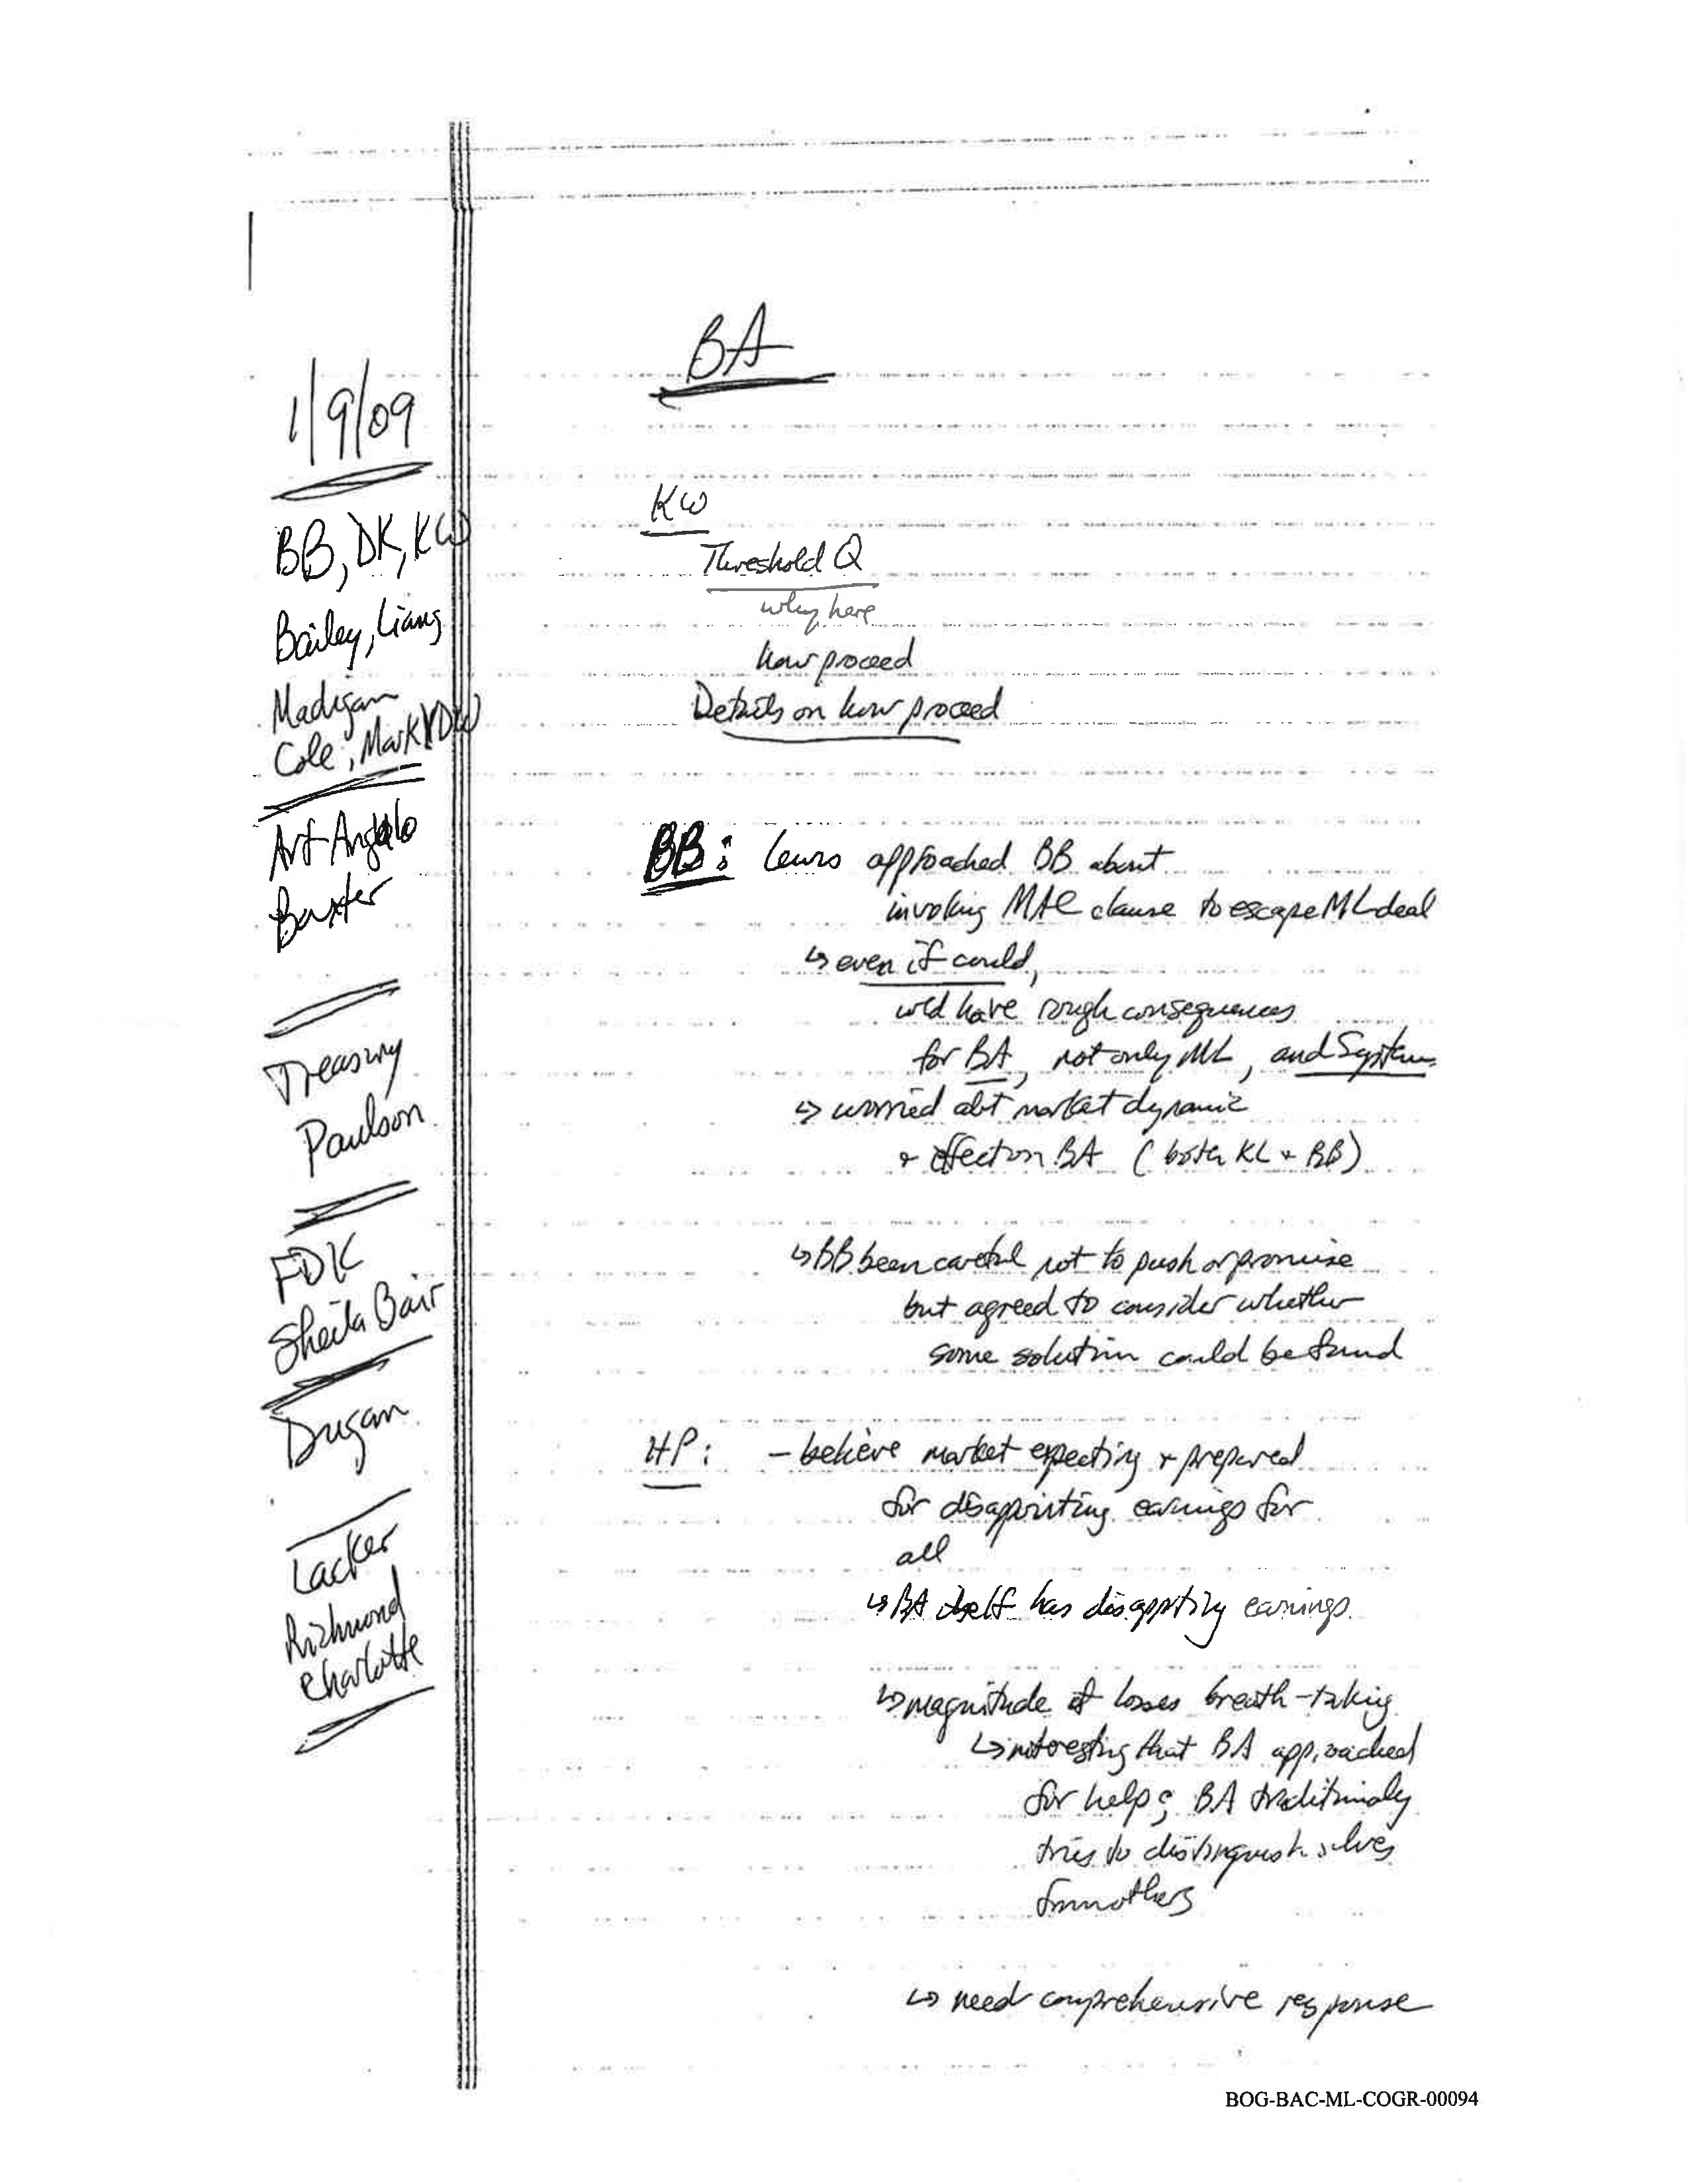 BA
1/9/09
BB, DK, KW
Bailey, Liang
Madigan
Cole, Mark VDW
Art Angulo
Baxter
Treasury
Paulson
FDIC
Sheila Bair
Dugan
Lacker
Richmond
Charlotte
KW
Threshold Q
why here
how proceed
Details on how proceed
BB: Lewis approached BB about
invoking MAC clause to escape ML deal
↳ even if could,
wld have rough consequences
for BA, not only ML, and System
↳ worried abt market dynamic
+ effect on BA (both KL + BB)
↳ BB been careful not to push or promise
but agreed to consider whether
some solution could be found
HP: - believe market expecting + prepared
for disappointing earnings for
all
↳ BA itself has disappting earnings
↳ magnitude of losses breath-taking
↳ interesting that BA approached
for help; BA traditionally
tries to distinguish selves
from others
↳ need comprehensive response
BOG-BAC-ML-COGR-00094